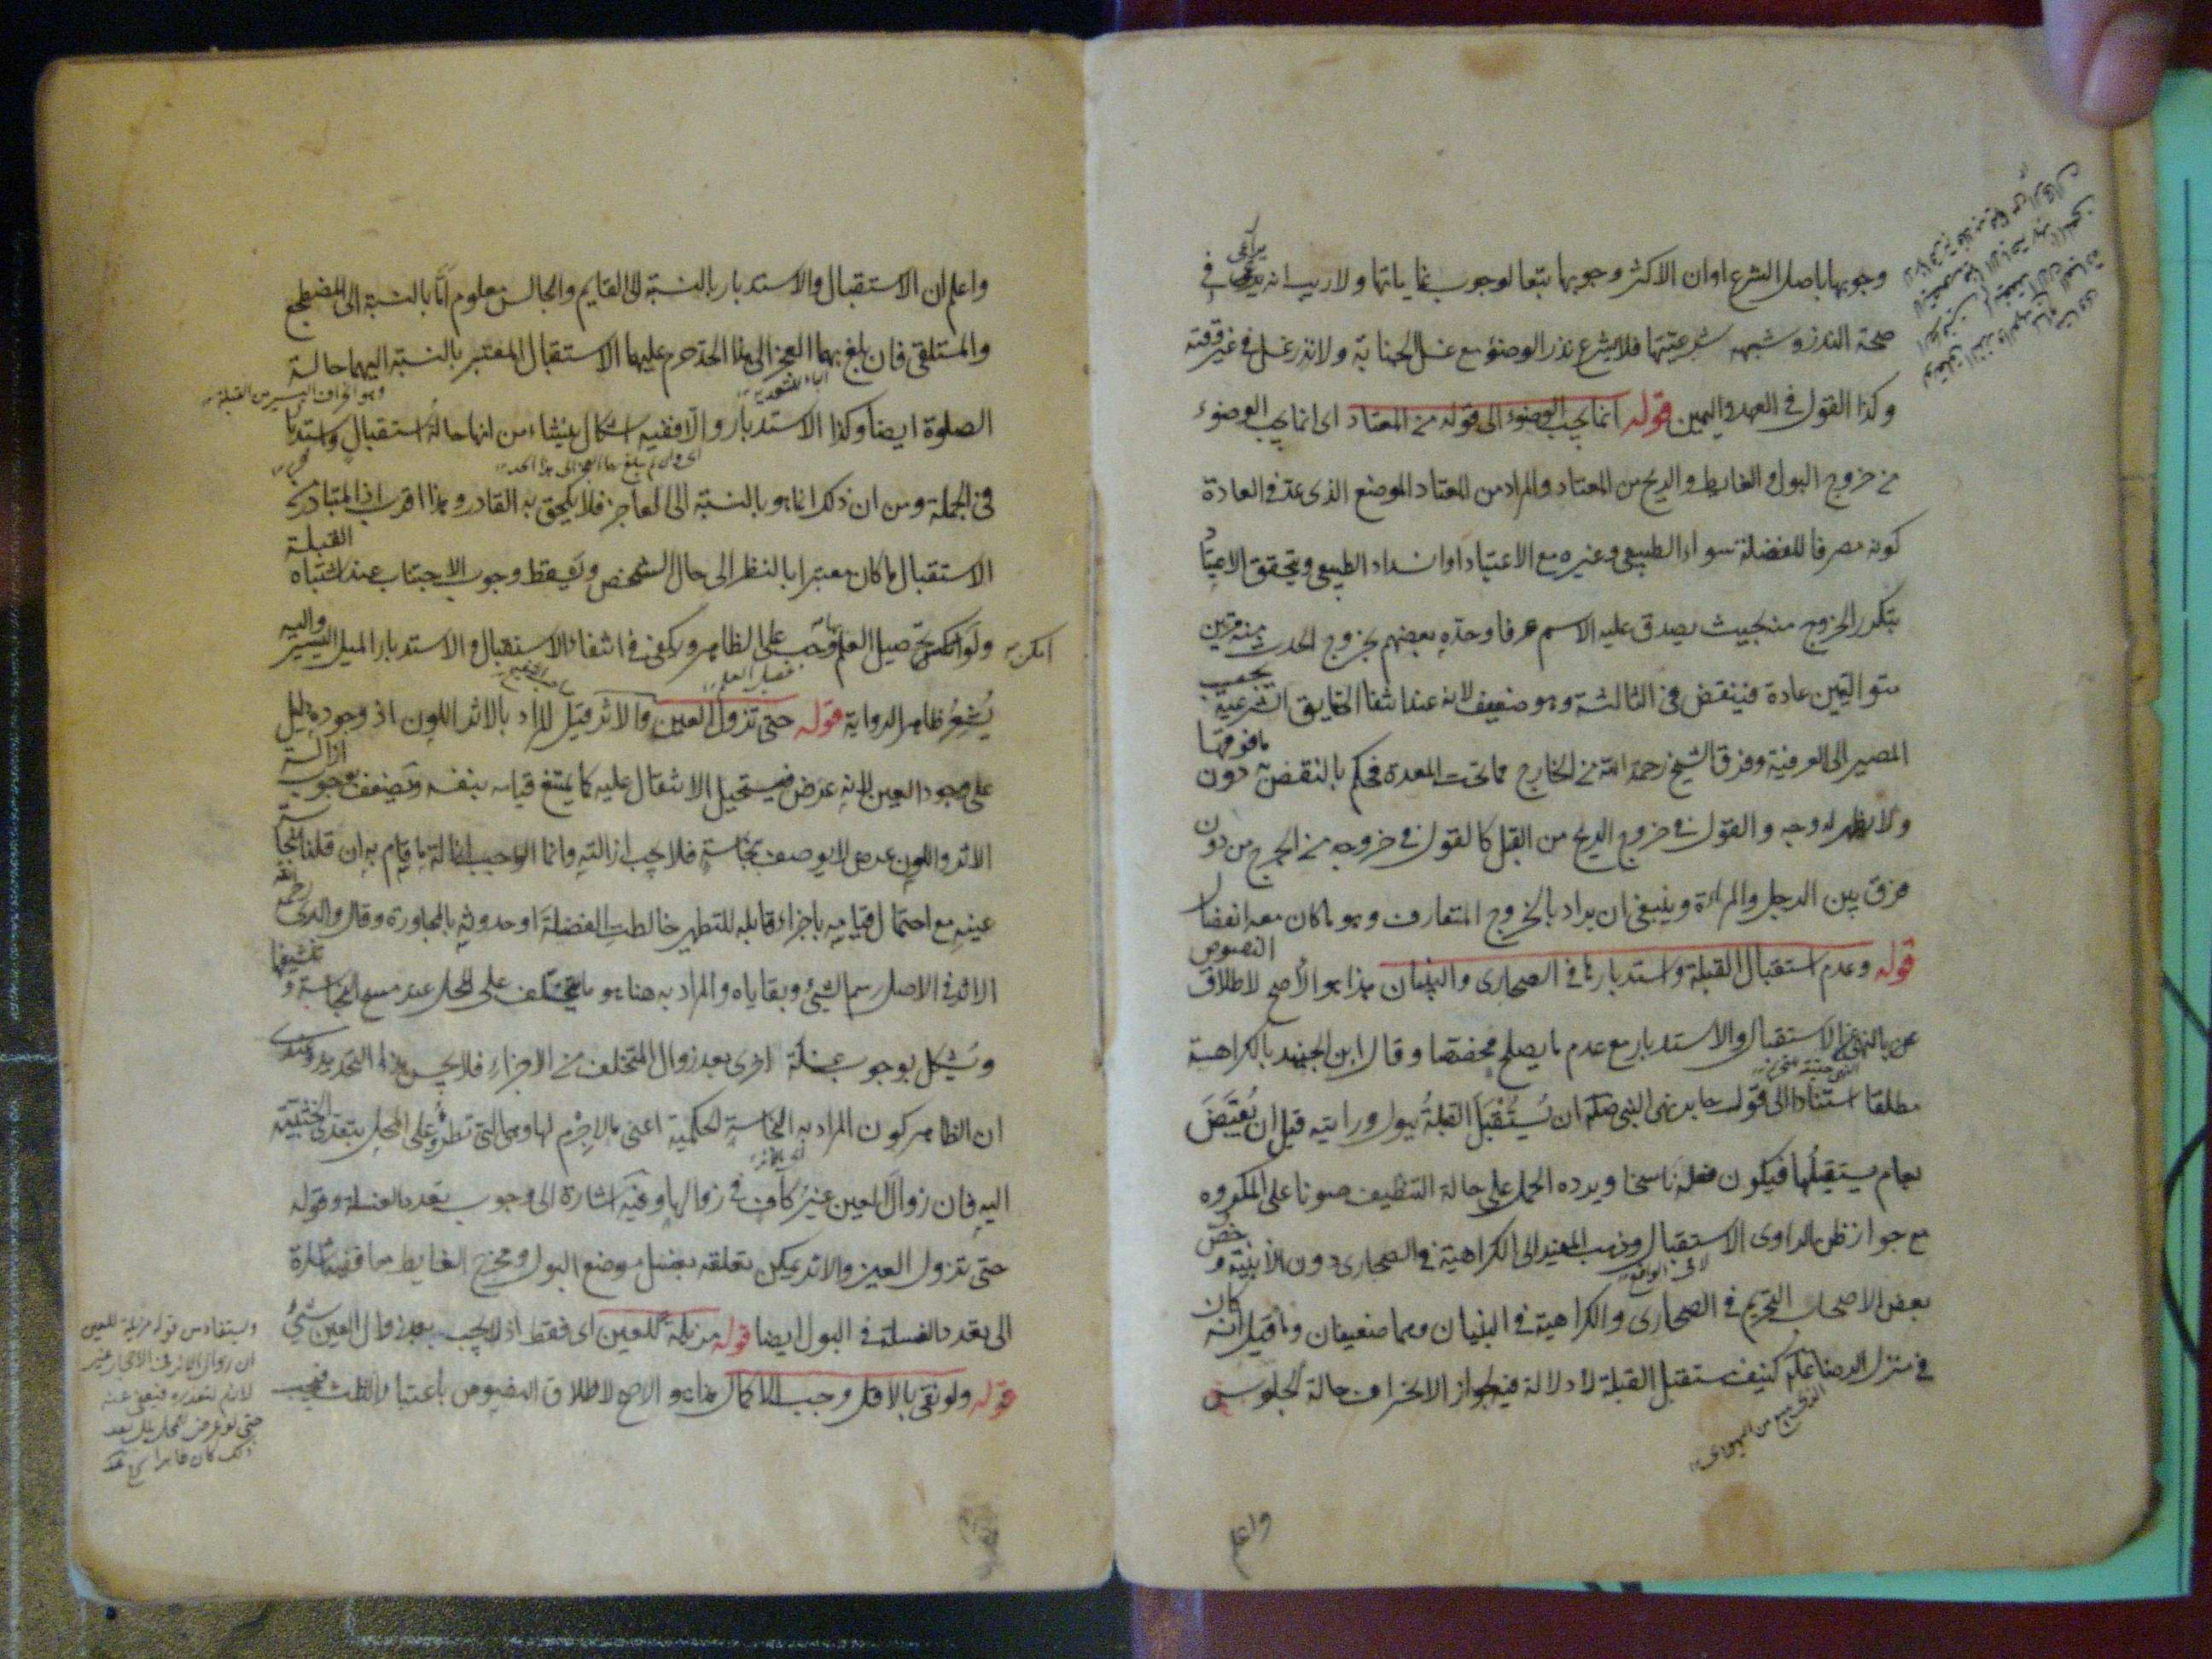 وجوبها باصل الشرع او ان الاكثر وجوبها تبعا لوجوب غاياتها ولا ريب انه يراعى في
صحة النذر وشبهه شرعيتها فلا يشرع نذر الوضوء مع غسل الجنابة ولا نذر غسل في غير وقته
وكذا القول في العهد واليمين قوله انما يجب الوضوء الى قوله من المعتاد اى انما يجب الوضوء
من خروج البول والغايط والريح من المعتاد والمراد من المعتاد الموضع الذى عد في العادة
كونه مصرفا للفضلة سواء الطبيعى وغيره مع الاعتياد او انسداد الطبيعى ويتحقق الاعتياد
بتكرر الخروج منه بحيث يصدق عليه الاسم عرفا وحده بعضهم بخروج الحدث منه مرتين
متواليتين عادة فينقض في الثالثة وهو ضعيف لانه عند انتفا الحقايق الشرعية يجب
المصير الى العرفية وفرق الشيخ رحمه الله في الخارج مما تحت المعدة فحكم بالنقض به دون ما فوقها
ولا يظهر له وجه والقول في خروج الريح من القبل كالقول في خروجه من الجرح من دون
فرق بين الرجل والمراءة وينبغى ان يراد بالخروج المتعارف وهو ما كان معه انفصال
قوله وعدم استقبال القبلة واستدبارها في الصحارى والبنيان هذا هو الاصح لاطلاق النصوص
بالنهى عن الاستقبال والاستدبار مع عدم ما يصلح مخصصا وقال ابن الجنيد بالكراهية
مطلقا استنادا الى قول جابر نهى النبى صلم ان يُستَقبَلَ القبلةُ ببول ورايته قبل ان يُقبَضَ
بعام يستقبلُها فيكون فعله ناسخا ويرده الحمل على حالة التنظيف صونا على المكروه
مع جواز ظن الراوى الاستقبال وذهب المفيد الى الكراهية في الصحارى دون الأبنية وخص
بعض الاصحاب التحريم في الصحارى والكراهية في البنيان وهما ضعيفان وما قيل انه كان
في منزل الرضا علم كنيف مستقبل القبلة لا دلالة فيه لجواز الانحراف حالة الجلوس
واعلم
واعلم ان الاستقبال والاستدبار بالنسبة الى القايم والجالس معلوم امّا بالنسبة الى المضطجع
والمستلقى فان بلغ بهما العجز الى هذا الحد حرم عليهما الاستقبال المعتبر بالنسبة اليهما حالة
الباء للتعدية
وهو انحراف اليسير من القبلة
الصلوة ايضا وكذا الاستدبار والّا ففيه اشكال ينشاء من انها حالةُ استقبالٍ واستدبار
اى وان لم يبلغ بهما العجز الى هذا الحد
في الجملة ومن ان ذلك انما هو بالنسبة الى العاجز فلا يلحق به القادر وهذا اقرب اذ المتبادر من
الاستقبال ما كان معتبرا بالنظر الى حال الشخص ويسقط وجوب الاجتناب عند اشتباه القبلة
ولو امكن تحصيل العلم وجب على الظاهر ويكفى في انتفاء الاستقبال والاستدبار الميل اليسير واليه
يُشعِرُ ظاهر الرواية قوله حتى تزول العين والاثر قيل المراد بالاثر اللون اذ وجوده دليل
على وجود العين لانه عرض فيستحيل الانتقال عليه كما يمتنع قيامه بنفسه ويضعف بوجوب ازالة
الاثر واللون عرض لا يوصف بنجاسة فلا يجب ازالته وانما الواجب ازالة ما قام به ان قلنا بنجاسة
عينه مع احتمال قيامه باجزاء قابله للتطهير خالطت الفضلة او حدوثه بالمجاورة وقال والدى رحمه الله
الاثر في الاصل رسم الشئ وبقاياه والمراد به هنا هو ما يتخلف على المحل عند مسح النجاسة وتنشيفها
ويُشكل بوجوب غسلة اخرى بعد زوال المتخلف من الاجزاء فلا يحسن هذا التحديد وعندى
ان الظاهر كون المراد به النجاسة الحكمية اعنى ما لا جِرْم لها وهى التى تطرؤ على المحل بتعدى الخبثية
اليه فان زوال العين غيرُ كافٍ في زوالها وفيه اشارة الى وجوب تعدد الغسلة وقوله
حتى تزول العين والاثر يمكن تعلقه بغسل موضع البول ومخرج الغايط معا ففيه اشارة
الى تعدد الغسلة في البول ايضا قوله مزيلة للعين اى فقط اذ لا يجب بعد زوال العين شئ
قوله ولو نقى بالاقل وجب الاكمال هذا هو الاصح لاطلاق النصوص باعتبار الثلث فيجب
ويستفاد من قوله مزيلة للعين
ان زوال الاثر في الاحجار غير
لازم لتعذره فيعفى عنه
حتى لو عرض للمحل بلل بعد
ذلك كان طاهرا